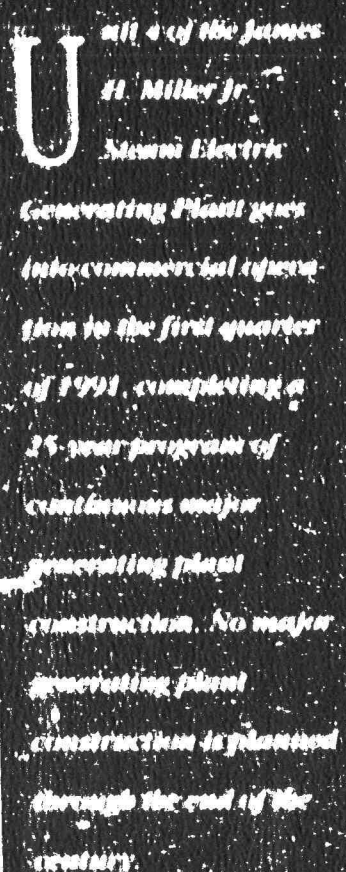 Unit 4 of the James
H. Miller Jr.
Steam Electric
Generating Plant goes
into commercial opera-
tion in the first quarter
of 1991, completing a
25-year program of
continuous major
generating plant
construction. No major
generating plant
construction is planned
through the end of the
century.